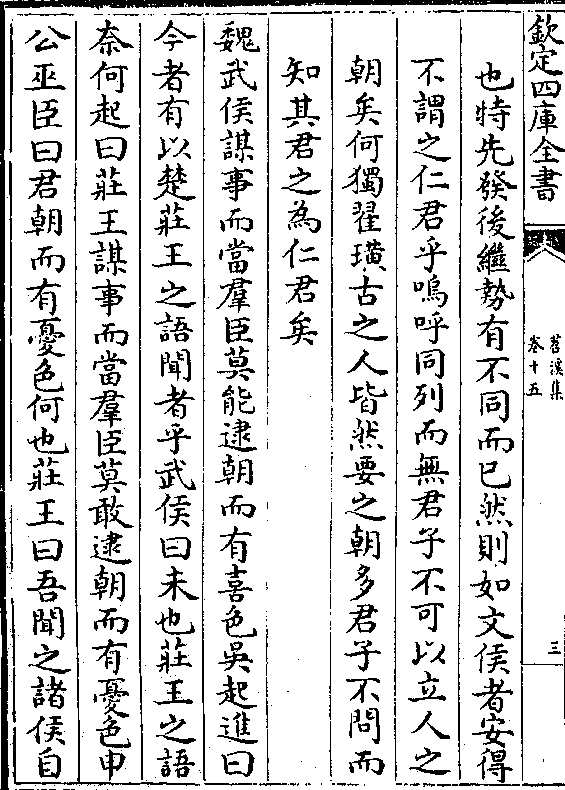 欽定四庫全書
苕溪集
卷十五
三
也特先發後繼勢有不同而已然則如文侯者安得
不謂之仁君乎嗚呼同列而無君子不可以立人之
朝矣何獨翟璜古之人皆然要之朝多君子不問而
知其君之為仁君矣
魏武侯謀事而當羣臣莫能逮朝而有喜色吳起進曰
今者有以楚莊王之語聞者乎武侯曰未也莊王之語
奈何起曰莊王謀事而當羣臣莫敢逮朝而有憂色申
公巫臣曰君朝而有憂色何也莊王曰吾聞之諸侯自